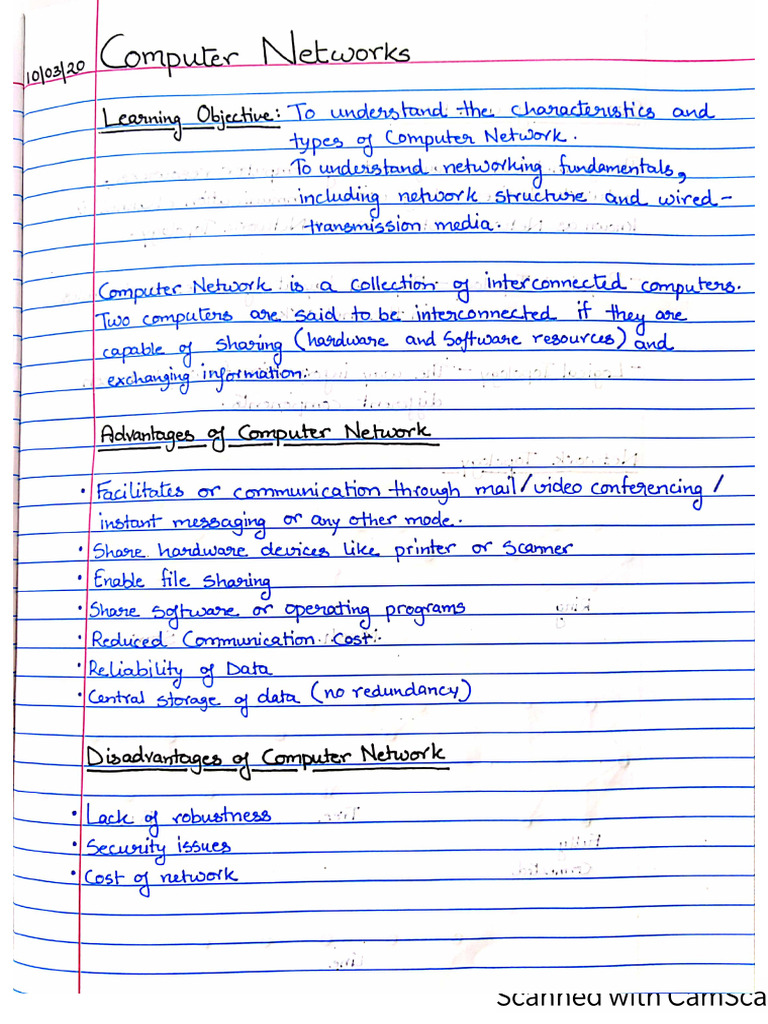 10/03/20 Computer Networks
Learning Objective: To understand the characteristics and
types of Computer Network.
To understand networking fundamentals,
including network structure and wired-
transmission media.
Computer Network is a collection of interconnected computers.
Two computers are said to be interconnected if they are
capable of sharing (hardware and software resources) and
exchanging information.
Advantages of Computer Network
• Facilitates or communication through mail/video conferencing/
instant messaging or any other mode.
• Share hardware devices like printer or scanner
• Enable file sharing
• Share software or operating programs
• Reduced Communication Cost.
• Reliability of Data
• Central storage of data (no redundancy)
Disadvantages of Computer Network
• Lack of robustness
• Security issues
• Cost of network
Scanned with CamSca